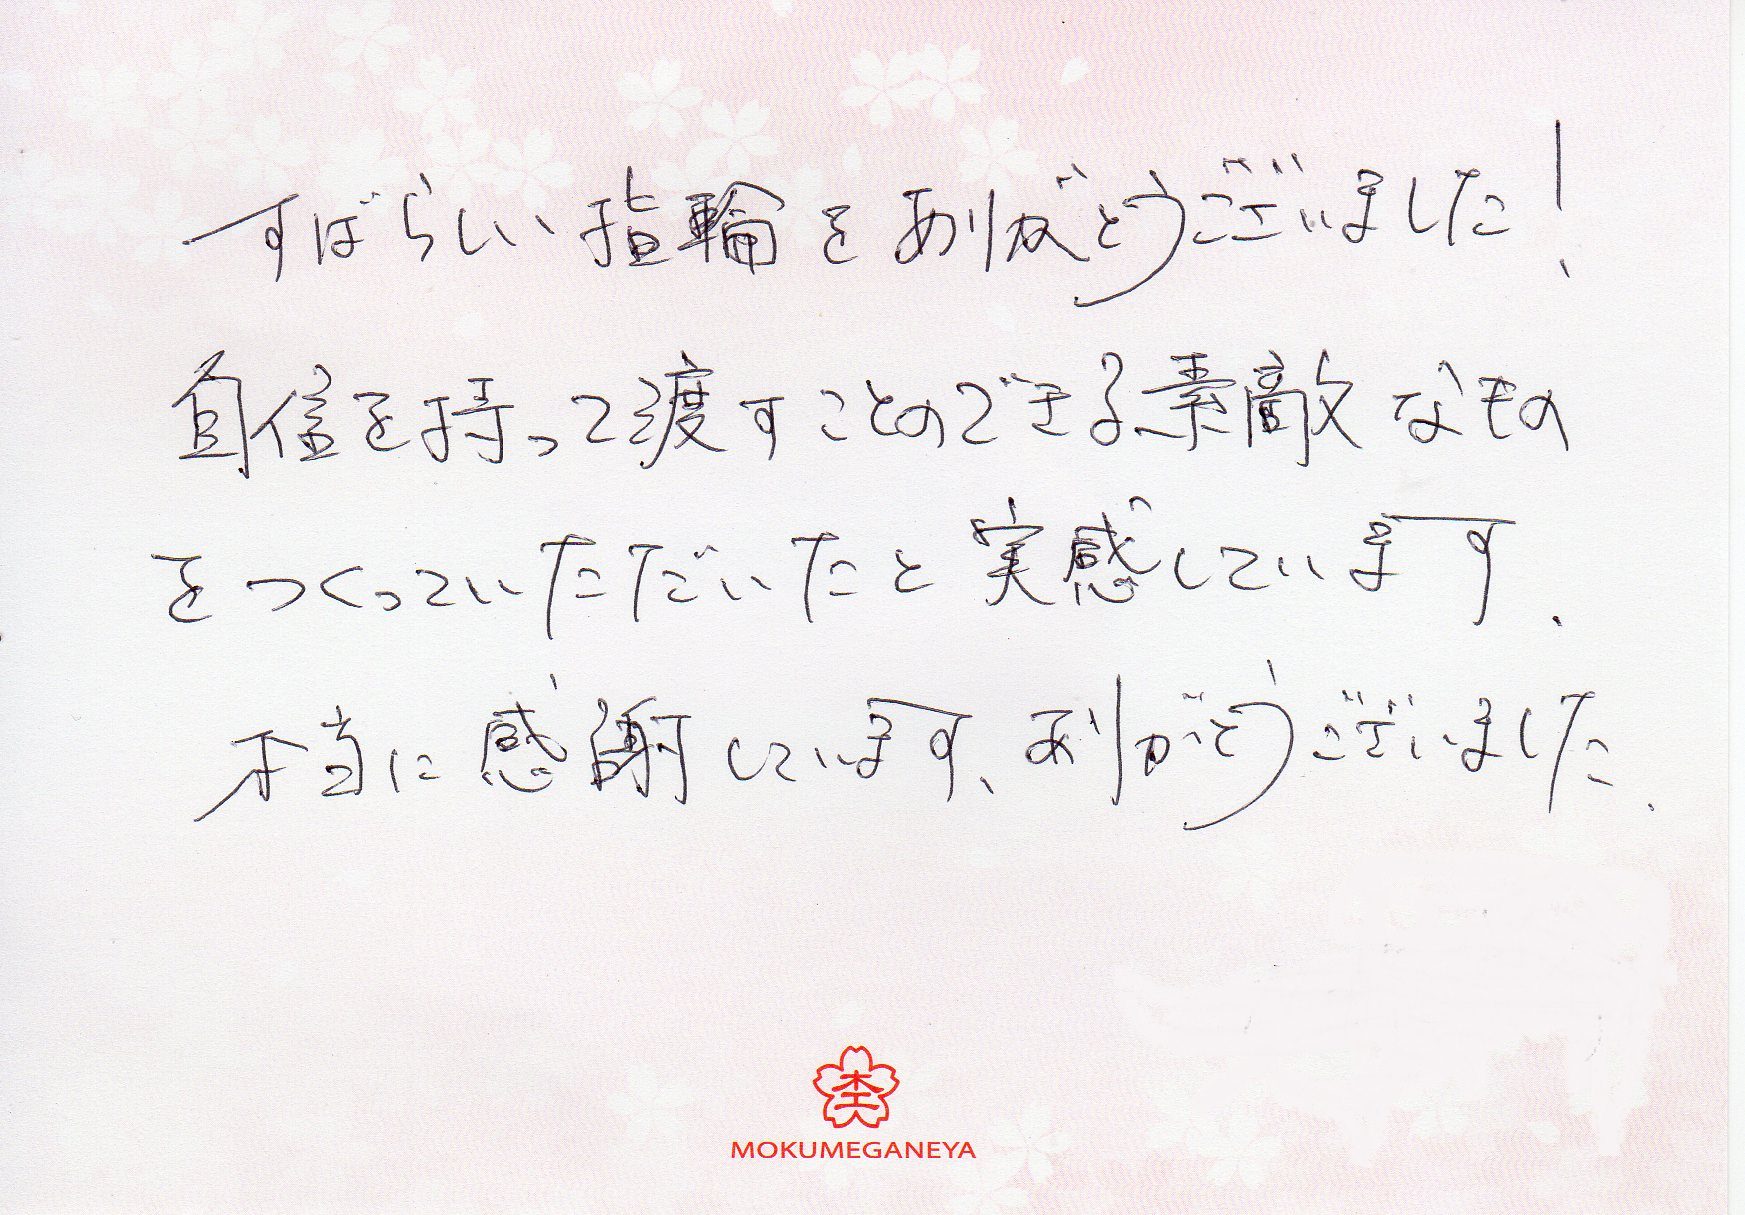 すばらしい指輪をありがとうございました!
自信を持って渡すことのできる素敵なもの
をつくっていただいたと実感しています.
本当に感謝しています、ありがとうございました.
杢
MOKUMEGANEYA